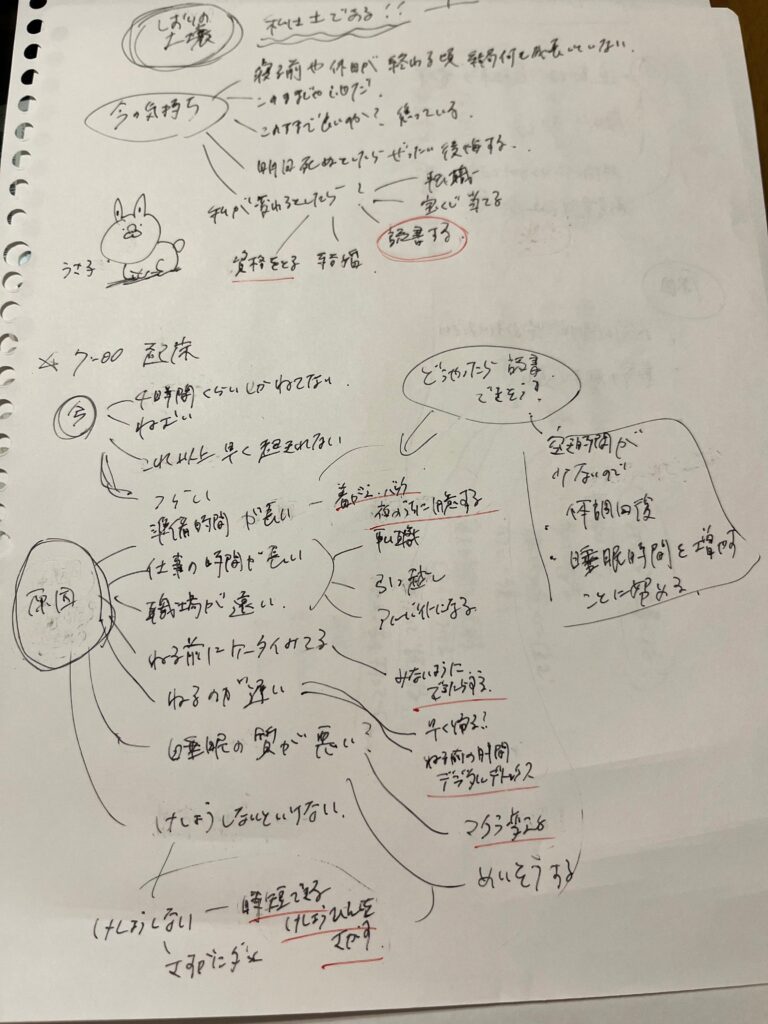 しおりの
土壌
私は土である!!
今の気持ち
寝る前や休日が終わる頃 結局何も成長していない.
このままじゃいやだ.
このままで良いのか? 焦っている.
明日死ぬとしたらぜったい後悔する.
私が変わるとしたら?
転職
宝くじ当てる
読書する.
資格をとる
結婚
うさ子
7:00 起床
今
4時間くらいしかねてない.
ねむい
これ以上早く起きれない
つらい
どうやったら読書
できそう?
空き時間が
少ないので
・体調回復
・睡眠時間を増やす
ことに努める.
原因
準備時間が長い
着がえ・バッグ
夜のうちに用意する
仕事の時間が長い
職場が遠い.
転職
引っ越し
アルバイトになる
ねる前にケータイみてる
みないように
できたらする.
ねるのが遅い
早く寝る?
ねる前の時間
デジタルデトックス
睡眠の質が悪い?
マクラ変える
めいそうする
けしょうしないといけない.
けしょうしない
時短できる
けしょうひんを
さがす.
さすがにダメ